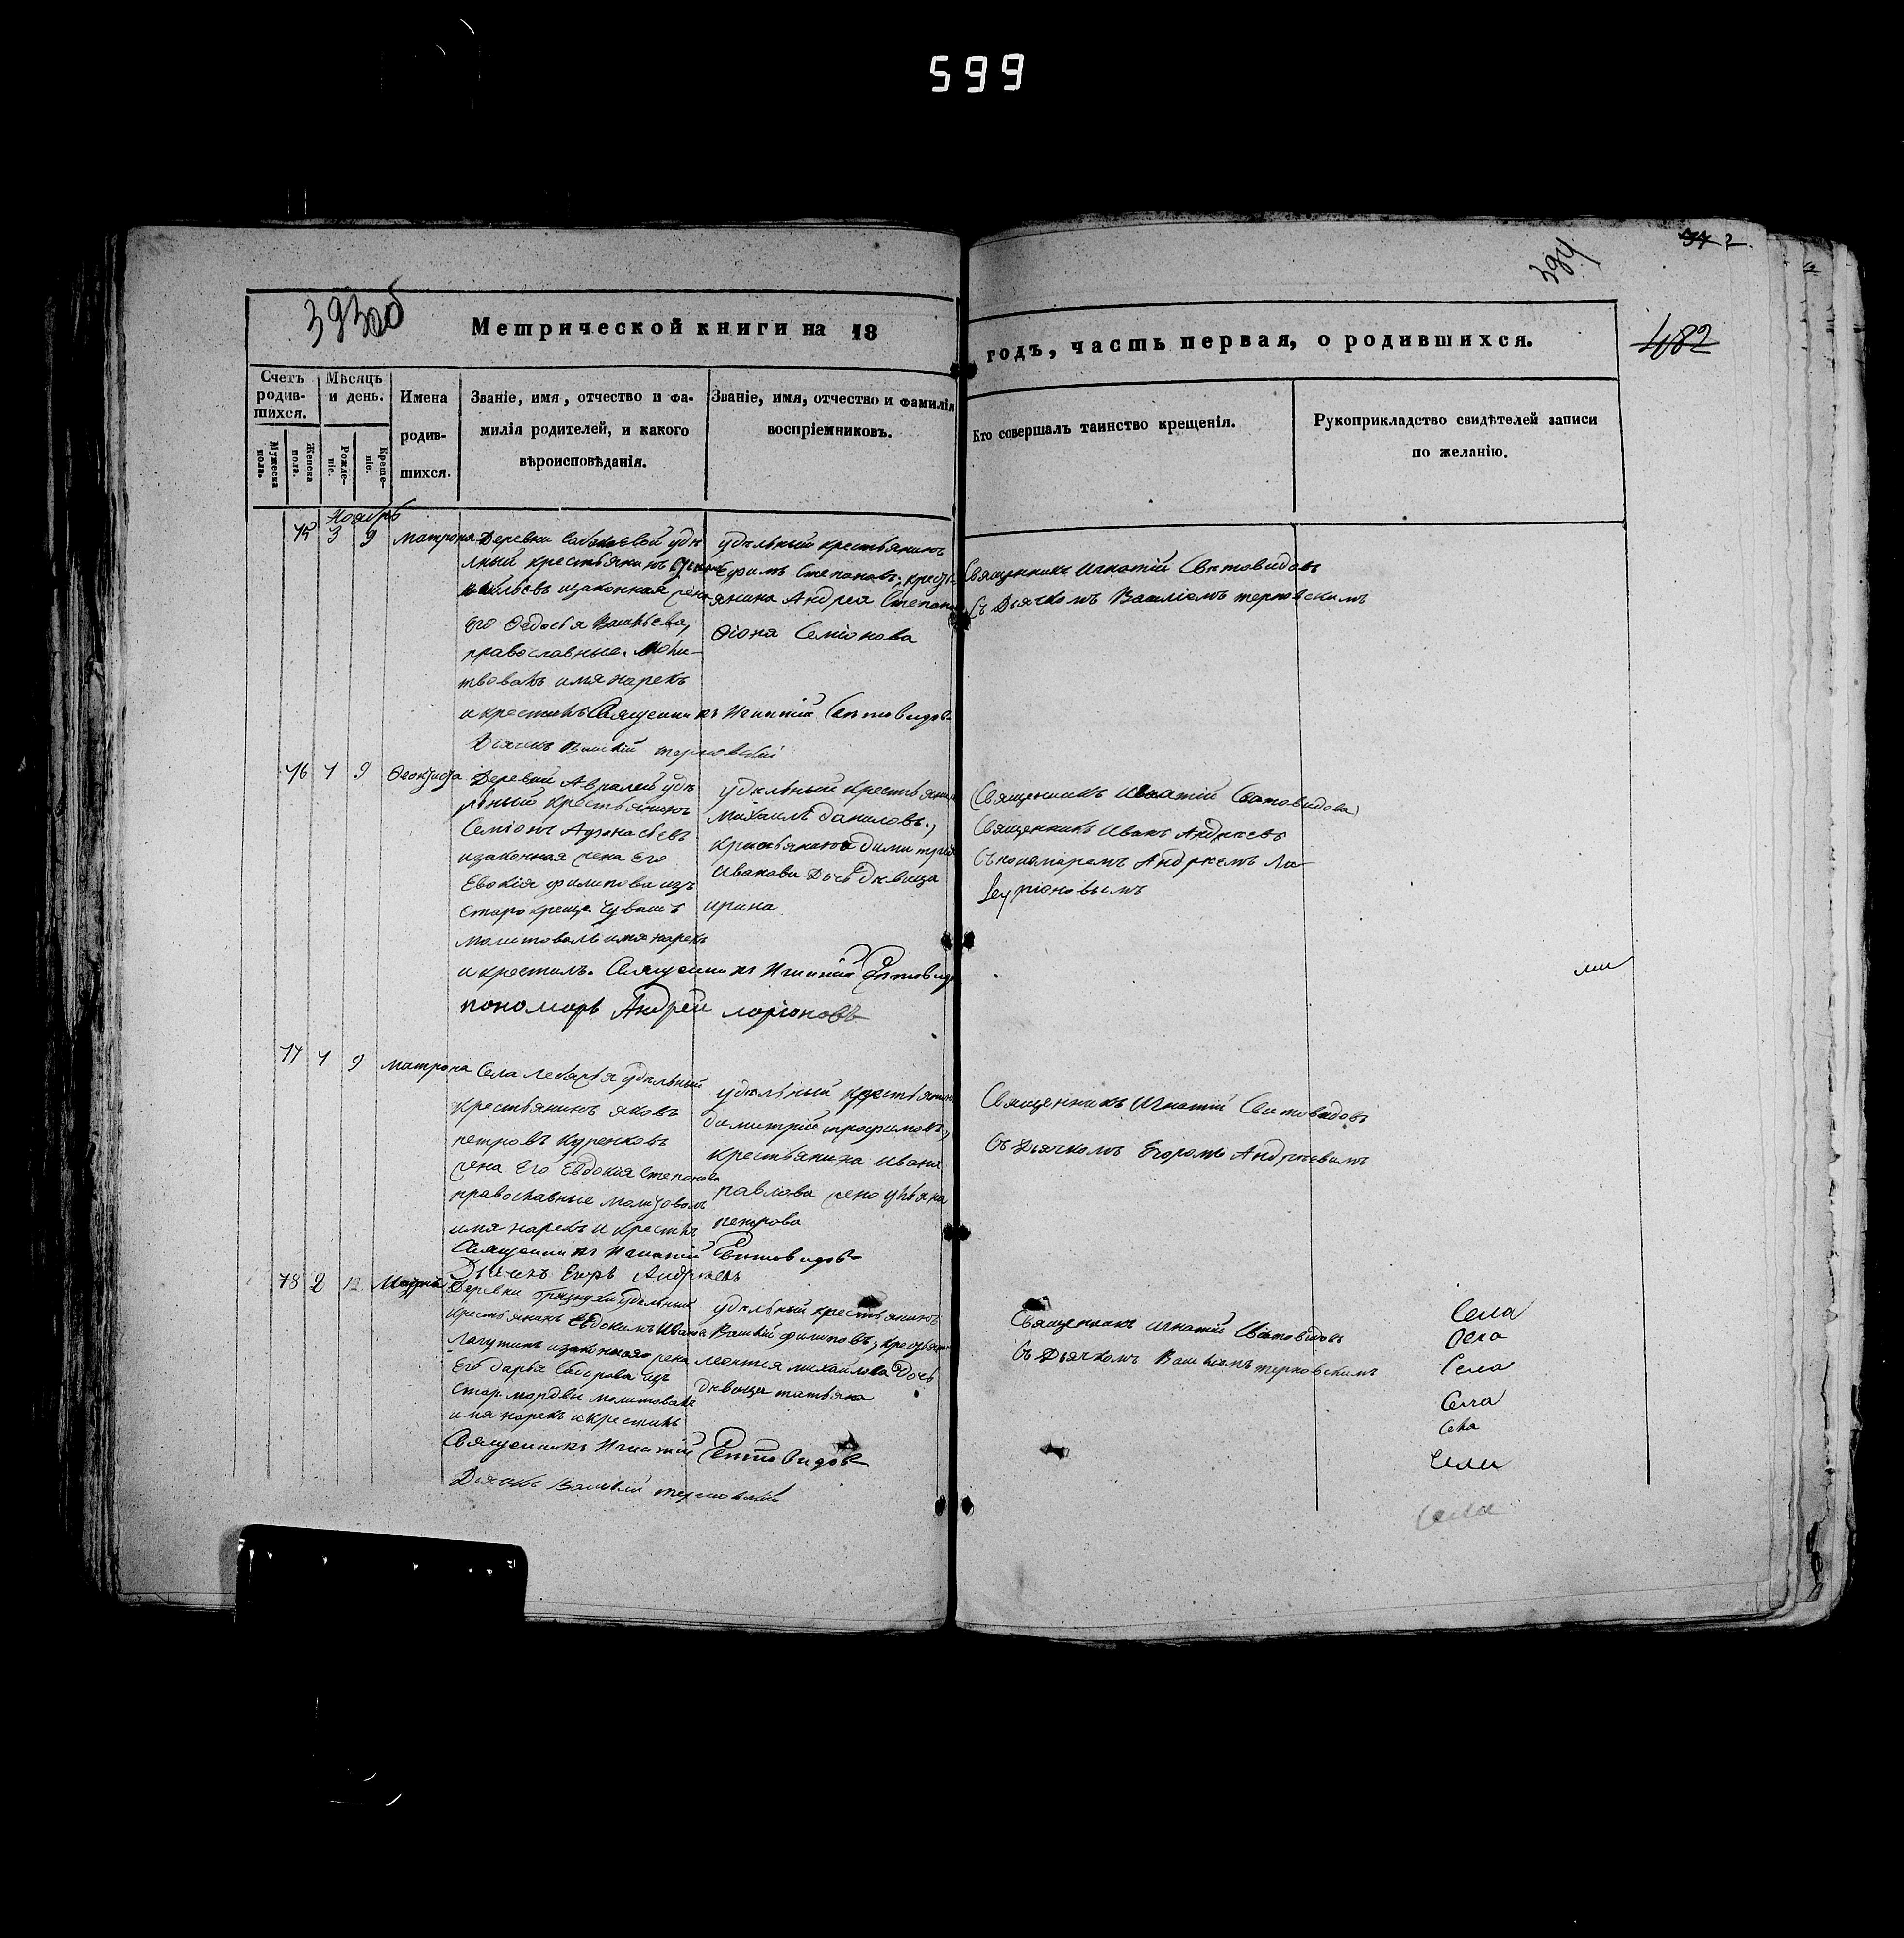 599
393об
394
37 2.
482
Метрической книги на 18
годъ, часть первая, о родившихся.
Счетъ родив-шихся.
Мужеска пола.
Женска пола.
Мѣсяцъ и день.
Рожде-ніе.
Креще-ніе.
Имена
родив-
шихся.
Званіе, имя, отчество и фа-
милія родителей, и какого
вѣроисповѣданія.
Званіе, имя, отчество и фамилія
воспріемниковъ.
Кто совершалъ таинство крещенія.
Рукоприкладство свидѣтелей записи
по желанію.
Ноябрь
75 3 9 Матрона
Деревни удѣ
льный крестьянинъ
изаконная жена
его Федосья
православные. Моли-
твовалъ имя нарекъ
и крестилъ Священникъ Игнатій Свѣтовидовъ
Дьячекъ Василій терновскій
удѣльный крестьянинъ
Ефимъ Степановъ, крест
янина Андрея Степан
Семіонова
Священникъ Игнатій Свѣтовидовъ
Съ Дьячкомъ Василіемъ терновскимъ
76 7 9 Феоктиста
Деревни Авралей удѣ
льный крестьянинъ
Семіонъ Афонасьевъ
изаконная жена Его
Евокія филипова изъ
Старокреще. Чувашъ
молитвовалъ имя нарекъ
и крестилъ. Священникъ Игнатій Свѣтовид
пономарь Андрей ларіоновъ
удѣльный крестьянин
Михаилъ даниловъ.,
крестьянина димитрія
Иванова Дочь дѣвица
ирина
Священникъ Игнатій Свѣтовидовъ
Священникъ Иванъ Андреевъ
Съ пономаремъ Андреемъ Ла
ріоновымъ
77 7 9 Матрона
Села лебяжья удѣльный
крестьянинъ яковъ
петровъ Куренковъ
жена Его Евдокия Степанова
православные молитвовалъ
имя нарекъ и крестилъ
Священникъ Игнатій Свѣтовидовъ
Дьячекъ Егоръ Андреевъ
удѣльный крестьянин
димитрій трофимовъ,
крестьянина Ивана
павлова жена ульяна
петрова
Священникъ Игнатій Свѣтовидовъ
Съ Дьячкомъ Егоромъ Андреевымъ
78 8 12
Деревни Грязнухи удѣльный
крестьянинъ Евдокимъ Ивано
Лагутинъ изаконная жена
Его дарья изъ
Стар. мордвы молитвовалъ
имя нарекъ и крестилъ
Священникъ Игнатій Свѣтовидовъ
Дьячекъ Василій терновскій
удѣльный крестьянинъ
Василій филиповъ, крестьян
леонтия михайлова Дочь
дѣвица татьяна
Священникъ Игнатій Свѣтовидовъ
Съ Дьячкомъ Василіемъ терновскимъ
Села
Села
Села
Села
Села